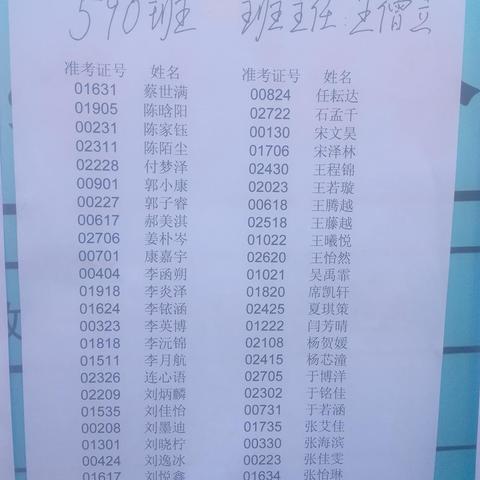 590班 班主任:王僧立
准考证号 姓名
01631 蔡世满
01905 陈晗阳
00231 陈家钰
02311 陈陌尘
02228 付梦泽
00901 郭小康
00227 郭子睿
00617 郝美淇
02706 姜朴岑
00701 康嘉宇
00404 李函朔
01918 李炎泽
01624 李铱涵
00323 李英博
01818 李沅锦
01511 李月航
02326 连心语
02209 刘炳麟
01535 刘佳怡
00208 刘墨迪
01301 刘晓柠
00424 刘逸冰
01617 刘悦鑫
准考证号 姓名
00824 任耘达
02722 石孟千
00130 宋文昊
01706 宋泽林
02430 王程锦
02023 王若璇
00618 王腾越
02518 王藤越
01022 王曦悦
02620 王怡然
01021 吴禹霏
01820 席凯轩
02425 夏琪策
01222 闫芳晴
02108 杨贺媛
02415 杨芯潼
02705 于博洋
02302 于铭佳
00731 于若涵
01735 张艾佳
00330 张海滨
00223 张佳雯
01634 张怡琳